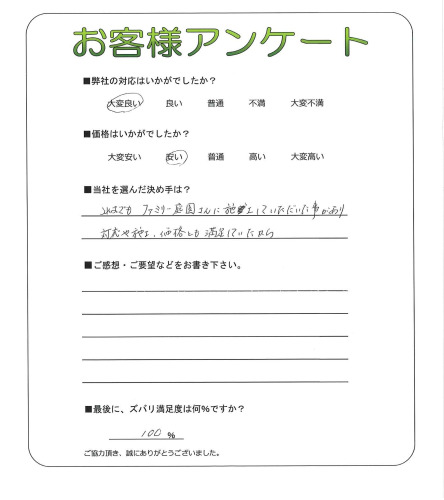 お客様アンケート
■弊社の対応はいかがでしたか？
大変良い 良い 普通 不満 大変不満
■価格はいかがでしたか？
大変安い 安い 普通 高い 大変高い
■当社を選んだ決め手は？
これまでも ファミリー庭園さんに施工していただいた事があり
対応や施工、価格とも満足していたから
■ご感想・ご要望などをお書き下さい。
■最後に、ズバリ満足度は何%ですか？
100 %
ご協力頂き、誠にありがとうございました。